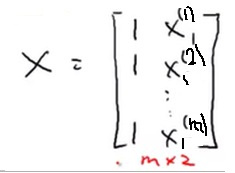 X = [ 1 x₁⁽¹⁾
1 x₁⁽²⁾
⋮ ⋮
1 x₁⁽ᵐ⁾ ]
m x 2